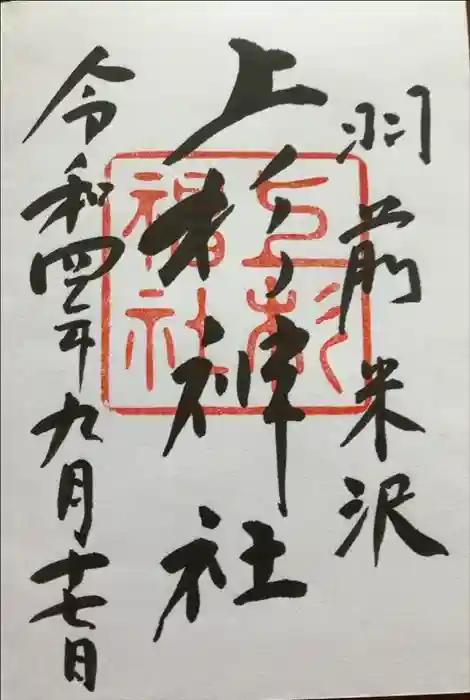 羽前米沢
上杉神社
令和四年九月十七日
上杉
社